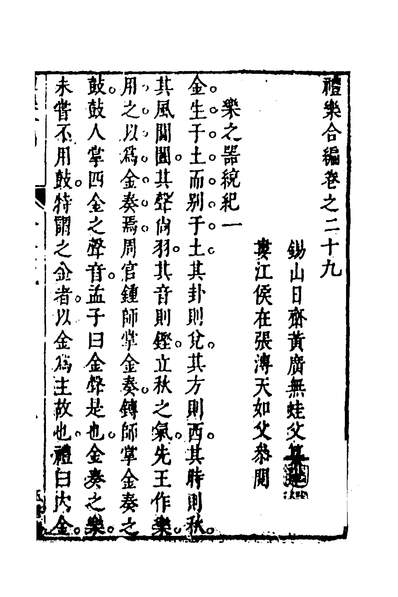 禮樂合編卷之二十九
錫山日齋黃廣無蛙父
婁江侯在張溥天如父叅閱
樂之器統紀一
金生于土而别于土其卦則兌其方則西其時則秋
其風閶闔其聲尙羽其音則鏗立秋之氣先王作樂
用之以爲金奏焉周官鍾師掌金奏鎛師掌金奏之
鼓鼓人掌四金之聲音孟子曰金聲是也金奏之樂
未嘗不用鼓特謂之金者以金爲主故也禮曰内金